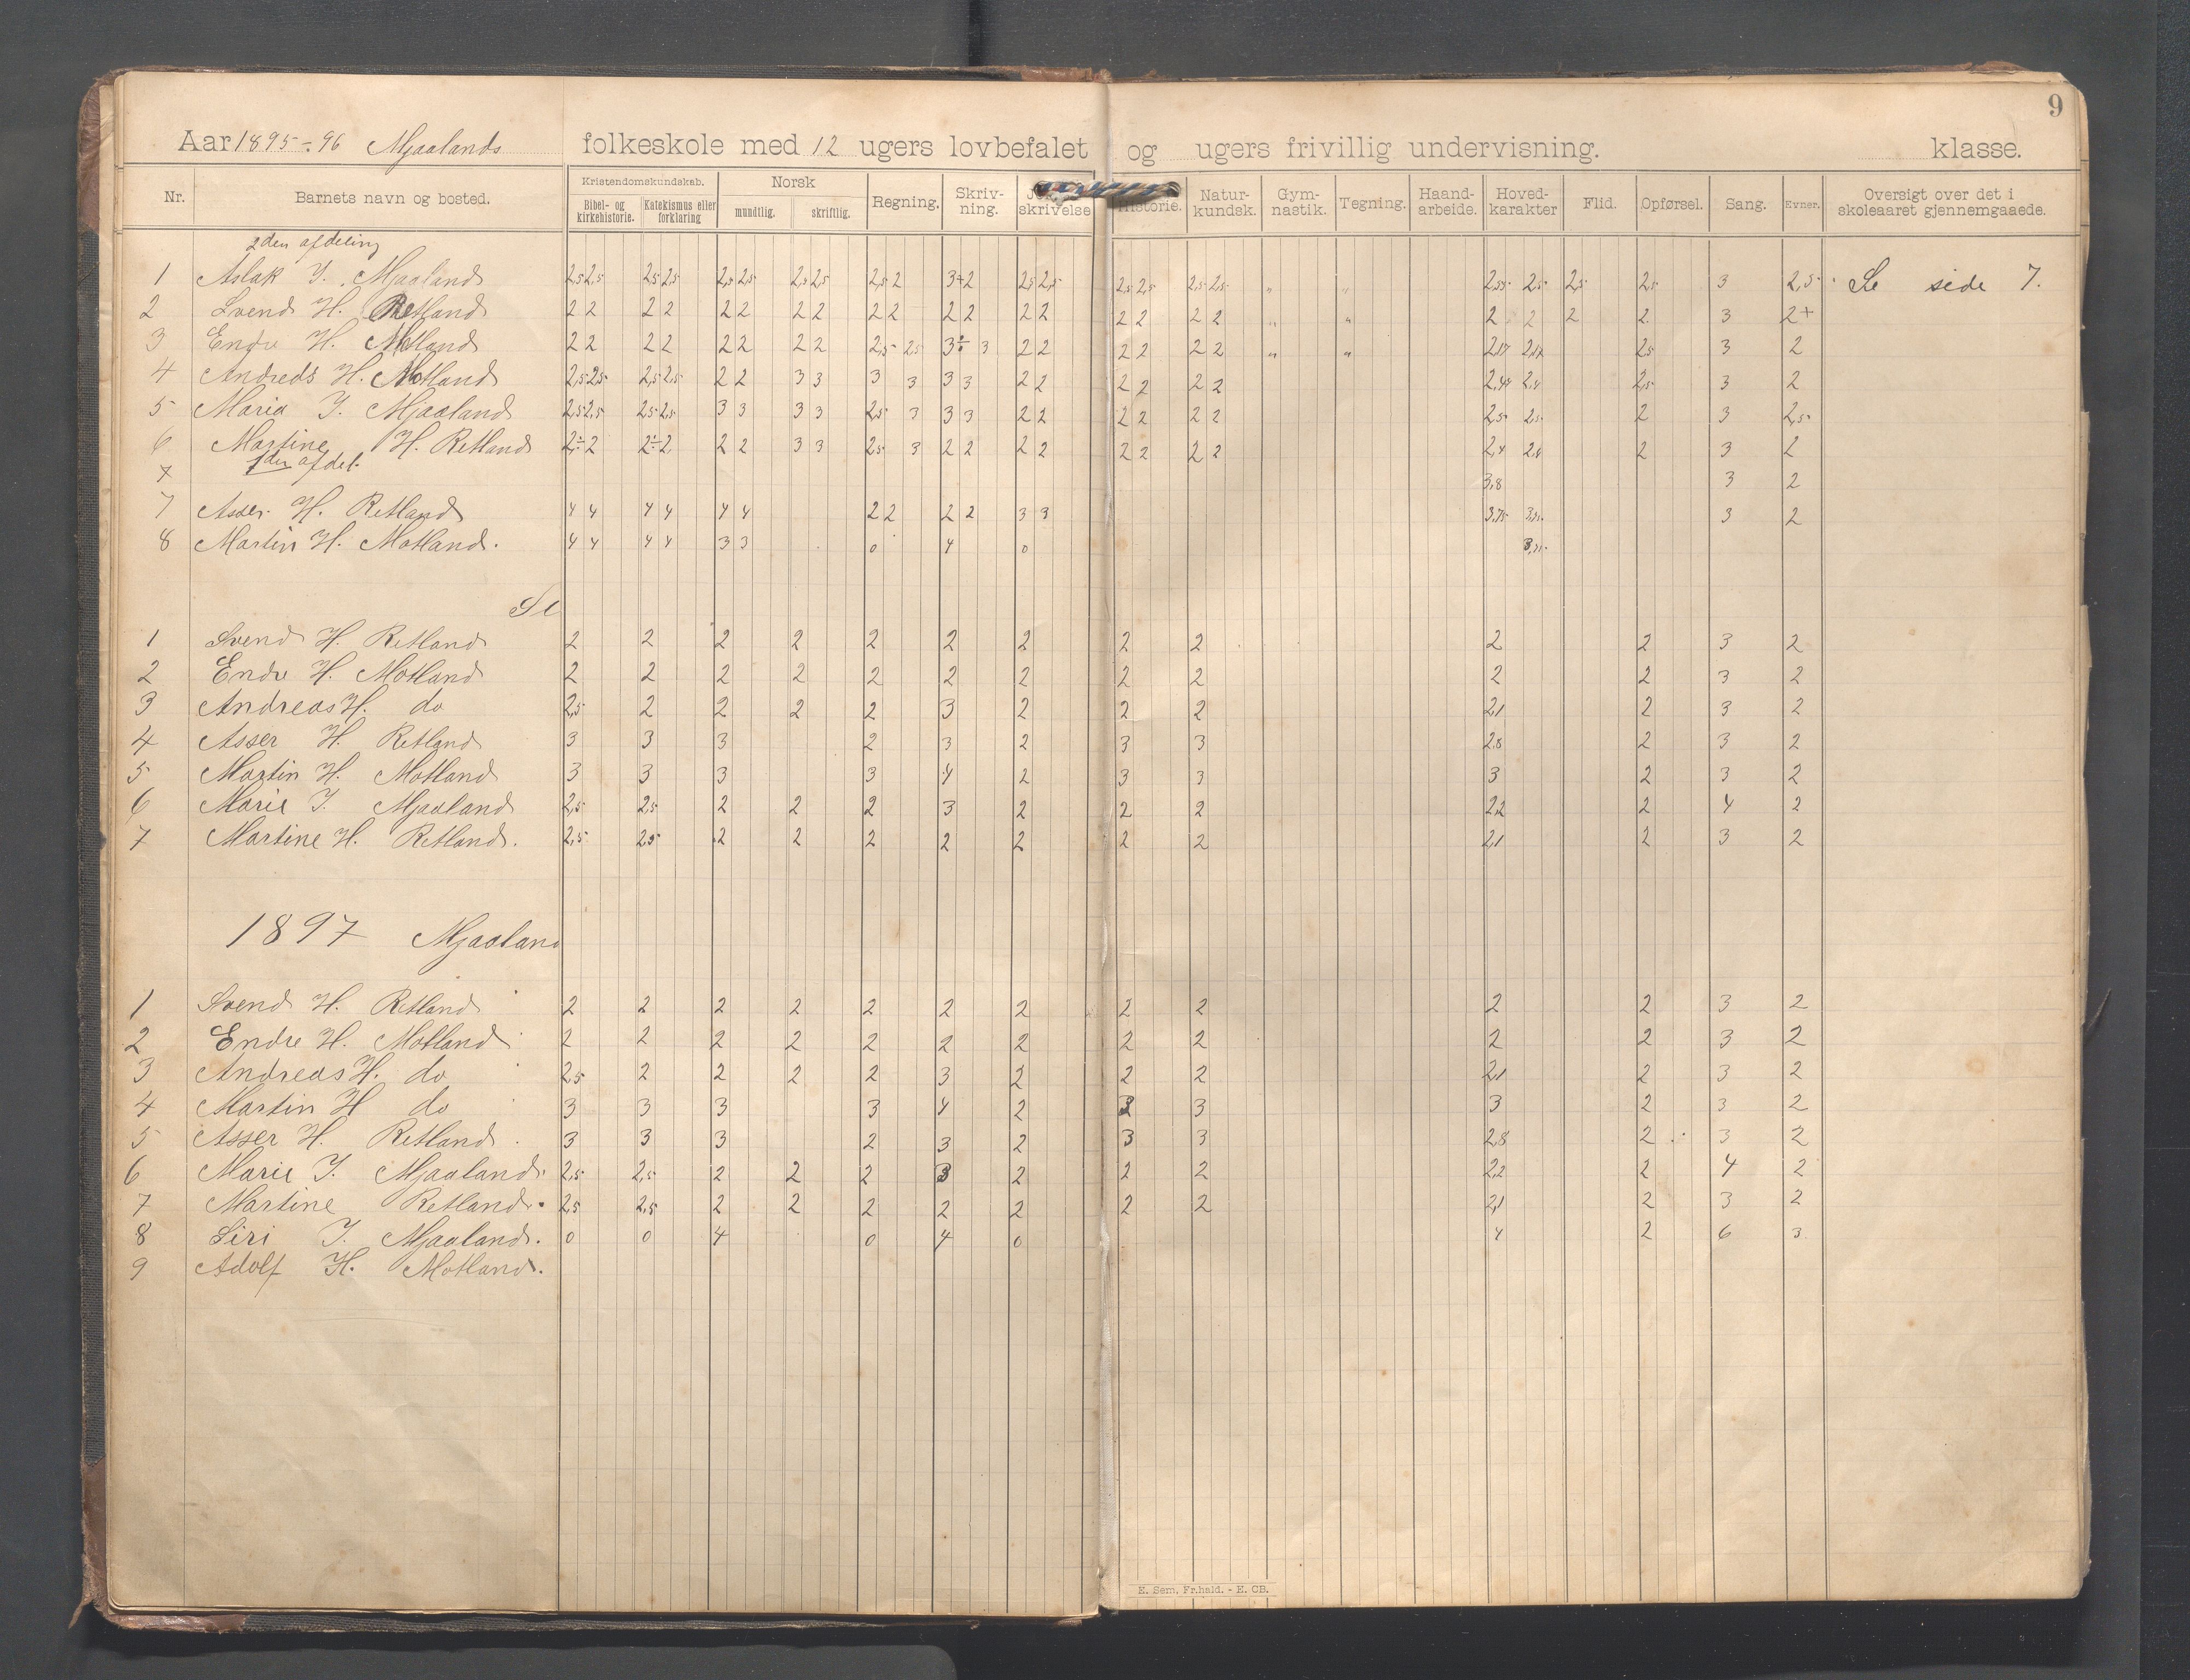 9
Aar 1895-96 Mjaalands folkeskole med 12 ugers lovbefalet og ugers frivillig undervisning. klasse.
Nr. Barnets navn og bosted. Kristendomskundskab. Bibel- og kirkehistorie. Katekismus eller forklaring Norsk mundtlig. skriftlig. Regning. Skriv-ning. skrivelse Historie. Natur-kundsk. Gym-nastik. Tegning. Haand-arbeide. Hoved-karakter Flid. Opførsel. Sang. Evner. Oversigt over det i skoleaaret gjennemgaaede.
2den afdeling
1 Aslak J. Mjaaland 2,5 2,5 2,5 2,5 2,5 2,5 2,5 2,5 2,5 2 3+2 2,5 2,5 2,5 2,5 2,5 2,5 " " 2,5 2,5 2,5 3 2,5 Se side 7.
2 Svend H. Retland 2 2 2 2 2 2 2 2 2 2 2 2 2 2 2 2 2 2 " " 2 2 2 2 3 2+
3 Endre H. Motland 2 2 2 2 2 2 2 2 2,5 2,5 3 2 2 2 2 2 2 " " 2,17 2,17 2,5 3 2
4 Andreas H. Motland 2,5 2,5 2,5 2,5 2 2 3 3 3 3 3 3 2 2 2 2 2 2 2,4 2,5 3 2
5 Maria J. Mjaaland 2,5 2,5 2,5 2,5 3 3 3 3 2,5 3 3 3 2 2 2 2 2 2 2,5 2,5 2 3 2,5
6 Martine H. Retland 2÷2 2÷2 2 2 3 3 2,5 3 2 2 2 2 2 2 2 2 2,4 2 3 2
1den afdel.
7 3,8 3 2
7 Asser H. Retland 4 4 4 4 4 4 2 2 2 2 3 3 3,75 3 2
8 Martin H. Motland. 4 4 4 4 3 3 0 4 0
Se
1 Svend H. Retland 2 2 2 2 2 2 2 2 2 2 2 3 2
2 Endre H. Motland 2 2 2 2 2 2 2 2 2 2 2 3 2
3 Andreas H. do 2,5 2 2 2 2 3 2 2 2 2,1 2 3 2
4 Asser H. Retland 3 3 3 2 3 2 3 3 2,8 2 3 2
5 Martin H. Motland 3 3 3 3 4 2 3 3 3 2 3 2
6 Marie J. Mjaaland 2,5 2,5 2 2 2 3 2 2 2 2,2 2 4 2
7 Martine H. Retland. 2,5 2,5 2 2 2 2 2 2 2 2,1 2 3 2
1897 Mjaaland
1 Svend H. Retland 2 2 2 2 2 2 2 2 2 2 2 3 2
2 Endre H. Motland 2 2 2 2 2 2 2 2 2 2 2 3 2
3 Andreas H. do 2,5 2 2 2 2 3 2 2 2 2,1 2 3 2
4 Martin H do 3 3 3 3 4 2 3 3 3 2 3 2
5 Asser H. Retland 3 3 3 2 3 2 3 3 2,8 2 3 2
6 Marie J. Mjaaland 2,5 2,5 2 2 2 3 2 2 2 2,2 2 4 2
7 Martine Retland. 2,5 2,5 2 2 2 2 2 2 2 2,1 2 3 2
8 Siri J. Mjaaland. 0 0 4 0 4 0 4 2 6 3
9 Adolf H. Motland.
E. Sem, Fr.hald. - E. CB.